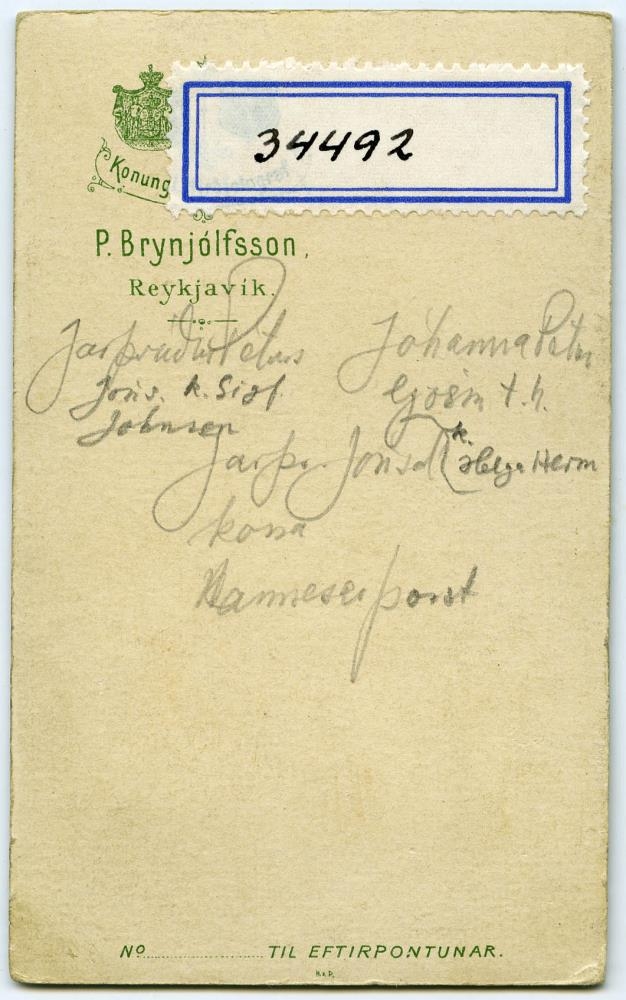 34492
Konung
P. Brynjólfsson,
Reykjavík.
Jarþrúdur Peturs
Jóhanna Petur
Jóns. k. Sigf.
Johnsen
t. h.
Jarþr. Jónsd
k.
Helga Herm
kona
Hannesar þorst
No TIL EFTIRPONTUNAR.
H. & P.